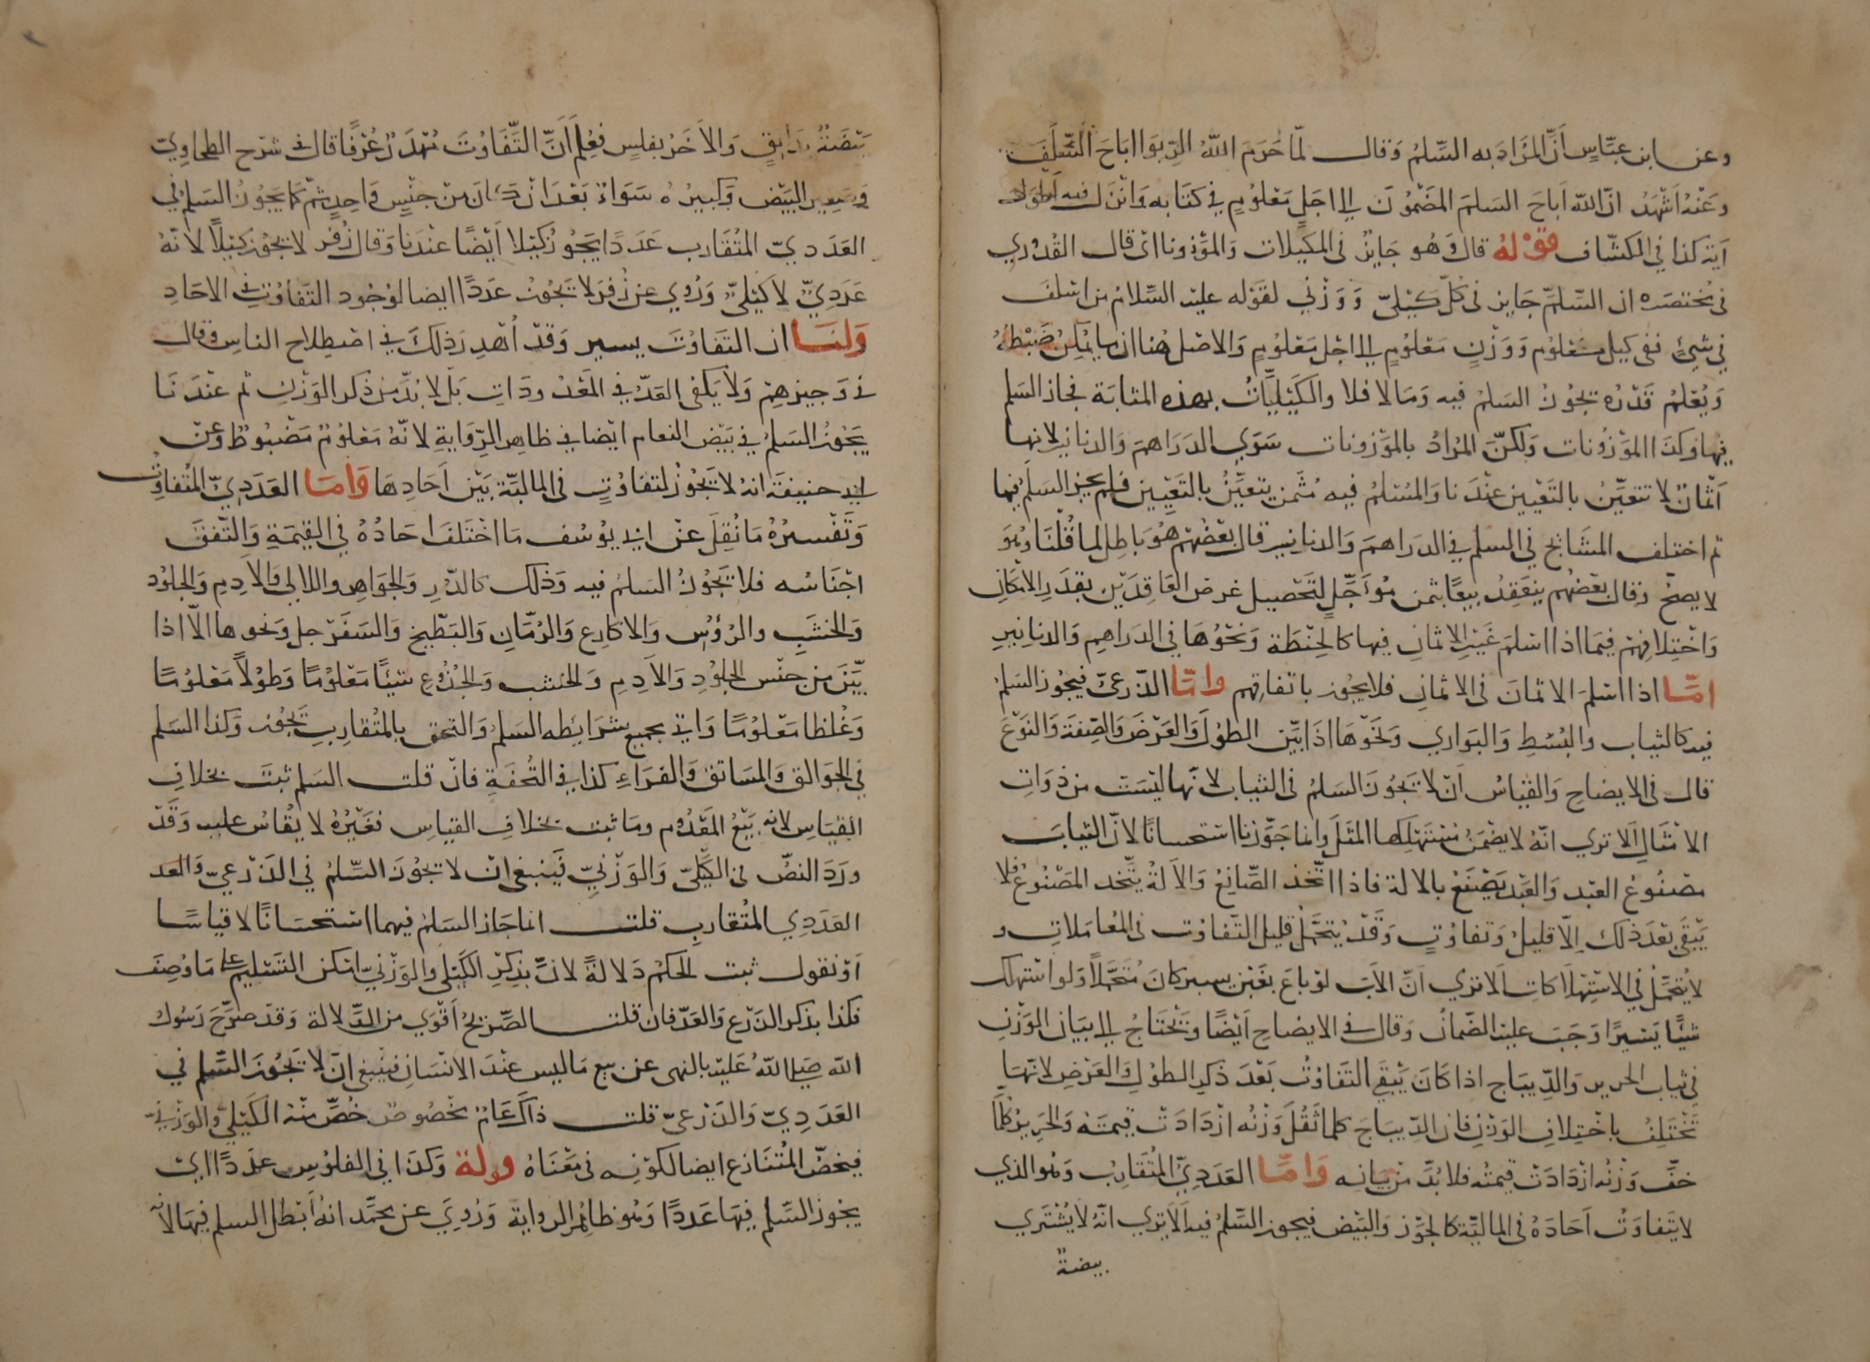 وعن ابن عباس أن المراد به السلم وقال لما حرم الله الربوا اباح السلف
وعنه أشهد ان الله أباح السلم المضمون إلى اجل معلوم في كتابه وانزل فيه أطول
آية كذا في الكشاف قوله قال وهو جايز في المكيلات والموزونات اى قال القدوري
في مختصره ان السلم جايز في كل كيلي ووزني لقوله عليه السلام من اسلف
في شيء ففى كيل معلوم ووزن معلوم إلى اجل معلوم والاصل هنا ان ما يمكن ضبطه
ويعلم قدره يجوز السلم فيه وما لا فلا والكيليات بهذه المثابة فجاز السلم
فيها وكذا الموزونات ولكن المراد بالموزونات سوى الدراهم والدنانير لانها
أثمان لا تتعين بالتعيين عندنا والمسلم فيه مثمن يتعين بالتعيين فلم يجز السلم فيها
ثم اختلف المشايخ في السلم في الدراهم والدنانير قال بعضهم هو باطل لما قلنا وهو
لا يصح وقال بعضهم ينعقد بيعا بثمن مؤجل لتحصيل غرض العاقدين بقدر الامكان
واختلافهم فيما اذا اسلم غير الاثمان فيها كالحنطة ونحوها في الدراهم والدنانير
امّا اذا اسلم الاثمان في الاثمان فلا يجوز باتفاقهم وامّا الذرعي فيجوز السلم
فيه كالثياب والبسط والبواري ونحوها اذا بين الطول والعرض والصفة والنوع
قال في الايضاح والقياس أن لا يجوز السلم في الثياب لانها ليست من ذوات
الامثال ألا ترى انه لا يضمن مستهلكها المثل وانما جوزنا استحسانا لان الثياب
مصنوع العبد والعبد يصنع بالالة فاذا اتخذ الصانع والالة يتخذ المصنوع فلا
يبقى بعد ذلك إلا قليل وتفاوت وقد يتحمل قليل التفاوت في المعاملات و
لا يتحمل في الاستهلاكات ألا ترى أن الأب لو باع بغبن يسير كان متحملا ولو استهلك
شيئا يسيرا وجب عليه الضمان وقال في الايضاح أيضا ويحتاج إلى بيان الوزن
في ثياب الحرير والديباج اذا كان يبقى التفاوت بعد ذكر الطول والعرض لانها
تختلف باختلاف الوزن فان الديباج كلما ثقل وزنه ازدادت قيمته والحرير كلما
خف وزنه ازدادت قيمته فلا بد من بيانه وامّا العددي المتقارب وهو الذي
لا يتفاوت آحاده في المالية كالجوز والبيض فيجوز السلم فيه ألا يرى انه لا يشترى
بيضة
بيضة بدانق والاخر بفلس فعلم أن التفاوت مهدر عرفا قال في شرح الطحاوي
وصغير البيض وكبيره سواء بعد ان كان من جنس واحد ثم كما يجوز السلم في
العددي المتقارب عددا يجوز كيلا أيضا عندنا وقال زفر لا يجوز كيلا لانه
عددي لا كيلي وروي عن زفر لا يجوز عددا ايضا لوجود التفاوت في الاحاد
ولنا ان التفاوت يسير وقد أهدر ذلك في اصطلاح الناس وقال
في وجيزهم ولا يكفى العد في المعدودات بل لا بد من ذكر الوزن ثم عندنا
يجوز السلم في بيض النعام ايضا في ظاهر الرواية لانه معلوم مضبوط وعن
ابي حنيفة انه لا يجوز لتفاوت في المالية بين آحادها وامّا العددي المتفاوت
وتفسيره ما نقل عن ابي يوسف ما اختلف احاده في القيمة واتفق
اجناسه فلا يجوز السلم فيه وذلك كالدر والجواهر واللالي والاديم والجلود
والخشب والرؤس والاكارع والرمان والبطيخ والسفرجل ونحوها الا اذا
بين من جنس الجلود والاديم والخشب والجذوع شيئا معلوما وطولا معلوما
وغلظا معلوما واتى بجميع شرايطه السلم والتحق بالمتقارب يجوز وكذا السلم
في الجوالق والمساتق والفراء كذا في التحفة فان قلت السلم ثبت بخلاف
القياس لانه بيع المعدوم وما ثبت بخلاف القياس فغيره لا يقاس عليه وقد
ورد النص في الكيلي والوزني فينبغي ان لا يجوز السلم في الذرعي والعد
العددي المتقارب قلت انما جاز السلم فيهما استحسانا لا قياسا
أو نقول ثبت الحكم دلالة لان بذكر الكيلي والوزني امكن التسليم على ما وصف
فكذا بذكر الذرع والعد فان قلت الصريح أقوى من الدلالة وقد صرح رسول
الله صلى الله عليه بالنهى عن بيع ما ليس عند الانسان فينبغي ان لا يجوز السلم في
العددي والذرعي قلت ذاك عام مخصوص خص منه الكيلي والوزني
فيخص المتنازع ايضا لكونه في معناه قوله وكذا في الفلوس عددا اى
يجوز السلم فيها عددا وهو ظاهر الرواية وروي عن محمد انه أبطل السلم فيها لانه